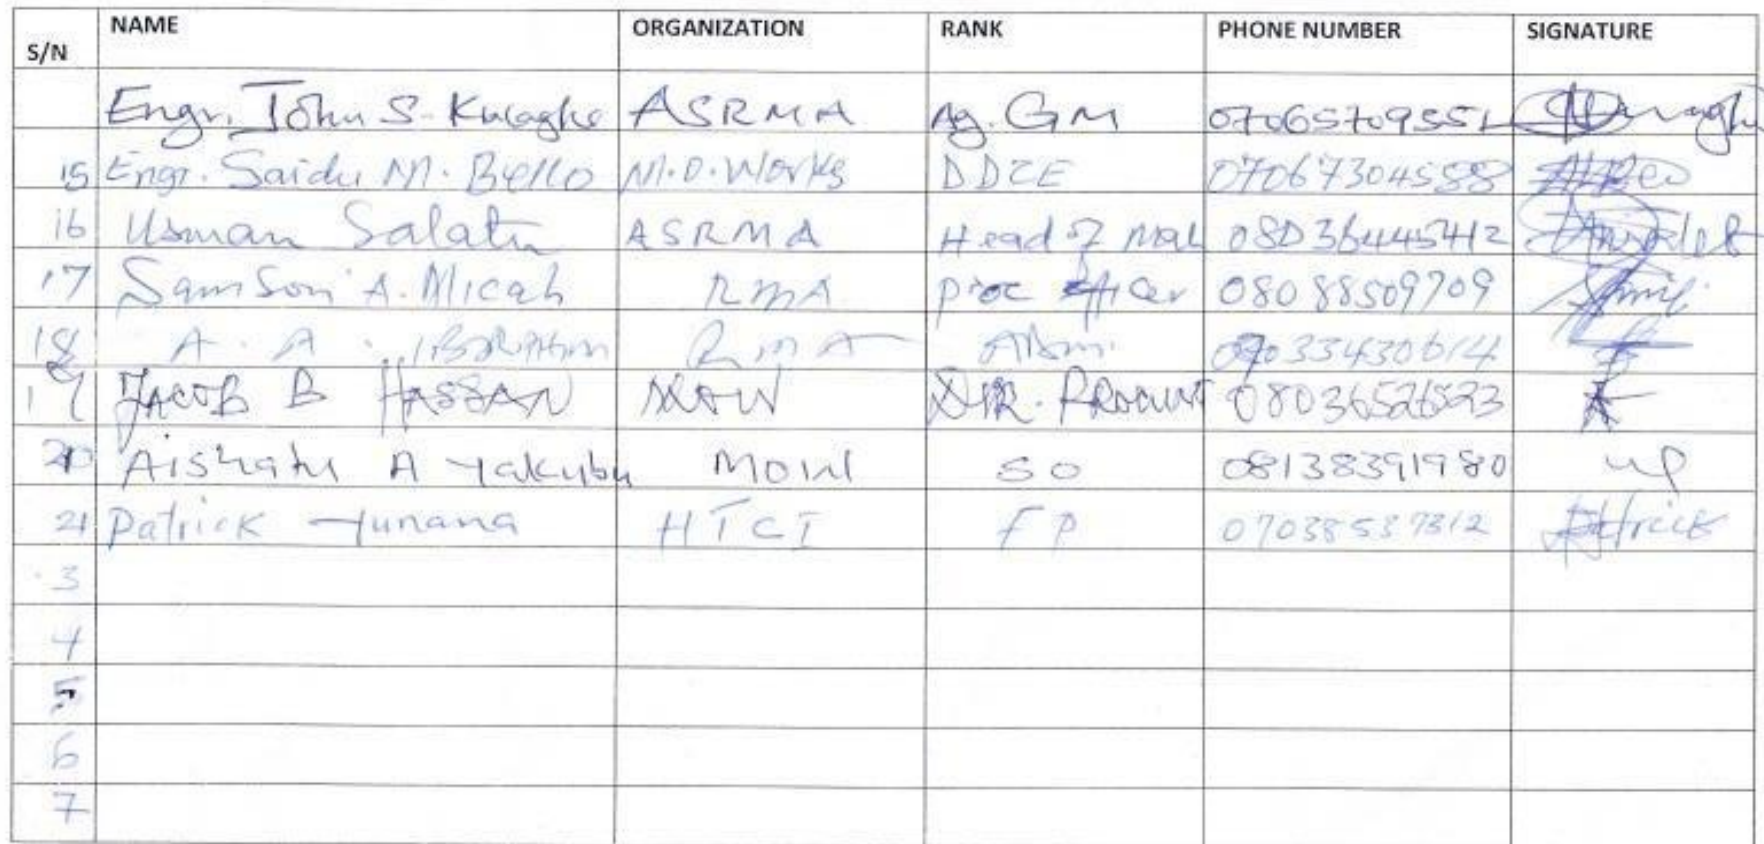 S/N NAME ORGANIZATION RANK PHONE NUMBER SIGNATURE
Engr. John S. Kwaghe ASRMA Ag. GM
15 Engr. Saidu M. Bello M.O. Works DDCE 07067304588
16 Usman Salatu ASRMA Head of 08036445412
17 Samson A. Micah RMA proc officer 08088509709
18 A. A. IBRAHIM RMA Adm. 07033430614
19 JACOB B HASSAN MOW DIR. PROCUR 08036526523
20 Aishatu A Yakubu SO 08138391980
21 Patrick Yunana HTCI FP 07038537312
3
4
5
6
7